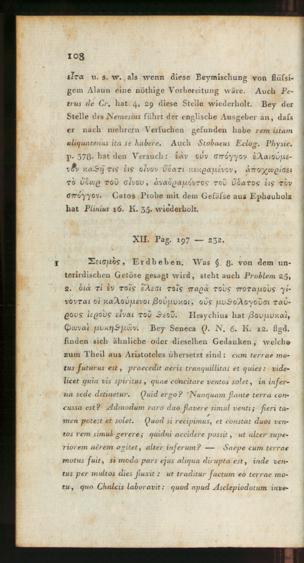 108
εἶτα u. s. w. als wenn diese Beymischung von flüssi-
gem Alaun eine nöthige Vorbereitung wäre. Auch Pe-
trus de Cr. hat 4, 29 diese Stelle wiederholt. Bey der
Stelle des Nemesius führt der englische Ausgeber an, daſs
er nach mehrern Versuchen gefunden habe rem istam
aliquantenus ita se habere. Auch Stobaeus Eclog. Physic.
p. 378. hat den Versuch: ἐὰν οὖν σπόγγον ἐλαιούμε-
νον καθῇ τις εἰς οἶνον ὕδατι κεκραμένον, ἀποχωρίσει
τὸ ὕδωρ τοῦ οἴνου, ἀναδραμόντος τοῦ ὕδατος εἰς τὸν
σπόγγον. Catos Probe mit dem Gefäſse aus Epheuholz
hat Plinius 16. K. 35. wiederholt.
XII. Pag. 197 — 232.
1 Σεισμὸς, Erdbeben. Was §. 8. von dem un-
terirdischen Getöse gesagt wird, steht auch Problem 25,
2. διὰ τί ἐν τοῖς ἕλεσι τοῖς παρὰ τοὺς ποταμοὺς γί-
νονται οἱ καλούμενοι βούμυκοι, οὓς μυθολογοῦσι ταύ-
ρους ἱεροὺς εἶναι τοῦ θεοῦ. Hesychius hat βουμυκαὶ,
φωναὶ μυκηθμῶν. Bey Seneca Q. N. 6. K. 12. flgd.
finden sich ähnliche oder dieselben Gedanken, welche
zum Theil aus Aristoteles übersetzt sind: cum terrae mo-
tus futurus est, praecedit aeris tranquillitas et quies: vide-
licet quia vis spiritus, quae concitare ventos solet, in infer-
na sede detinetur. Quid ergo? Nunquam flante terra con-
cussa est? Admodum raro duo flavere simul venti; fieri ta-
men potest et solet. Quod si recipimus, et constat duos ven-
tos rem simul gerere; quidni accidere possit, ut alter supe-
riorem aërem agitet, alter inferum? — Saepe cum terrae
motus fuit, si modo pars ejus aliqua dirupta est, inde ven-
tus per multos dies fluxit: ut traditur factum eo terrae mo-
tu, quo Chalcis laboravit: quod apud Asclepiodotum inve-